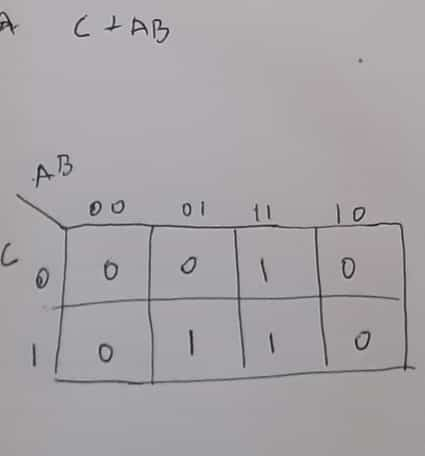 A C + AB
AB
00 01 11 10
C
0 0 0 1 0
1 0 1 1 0